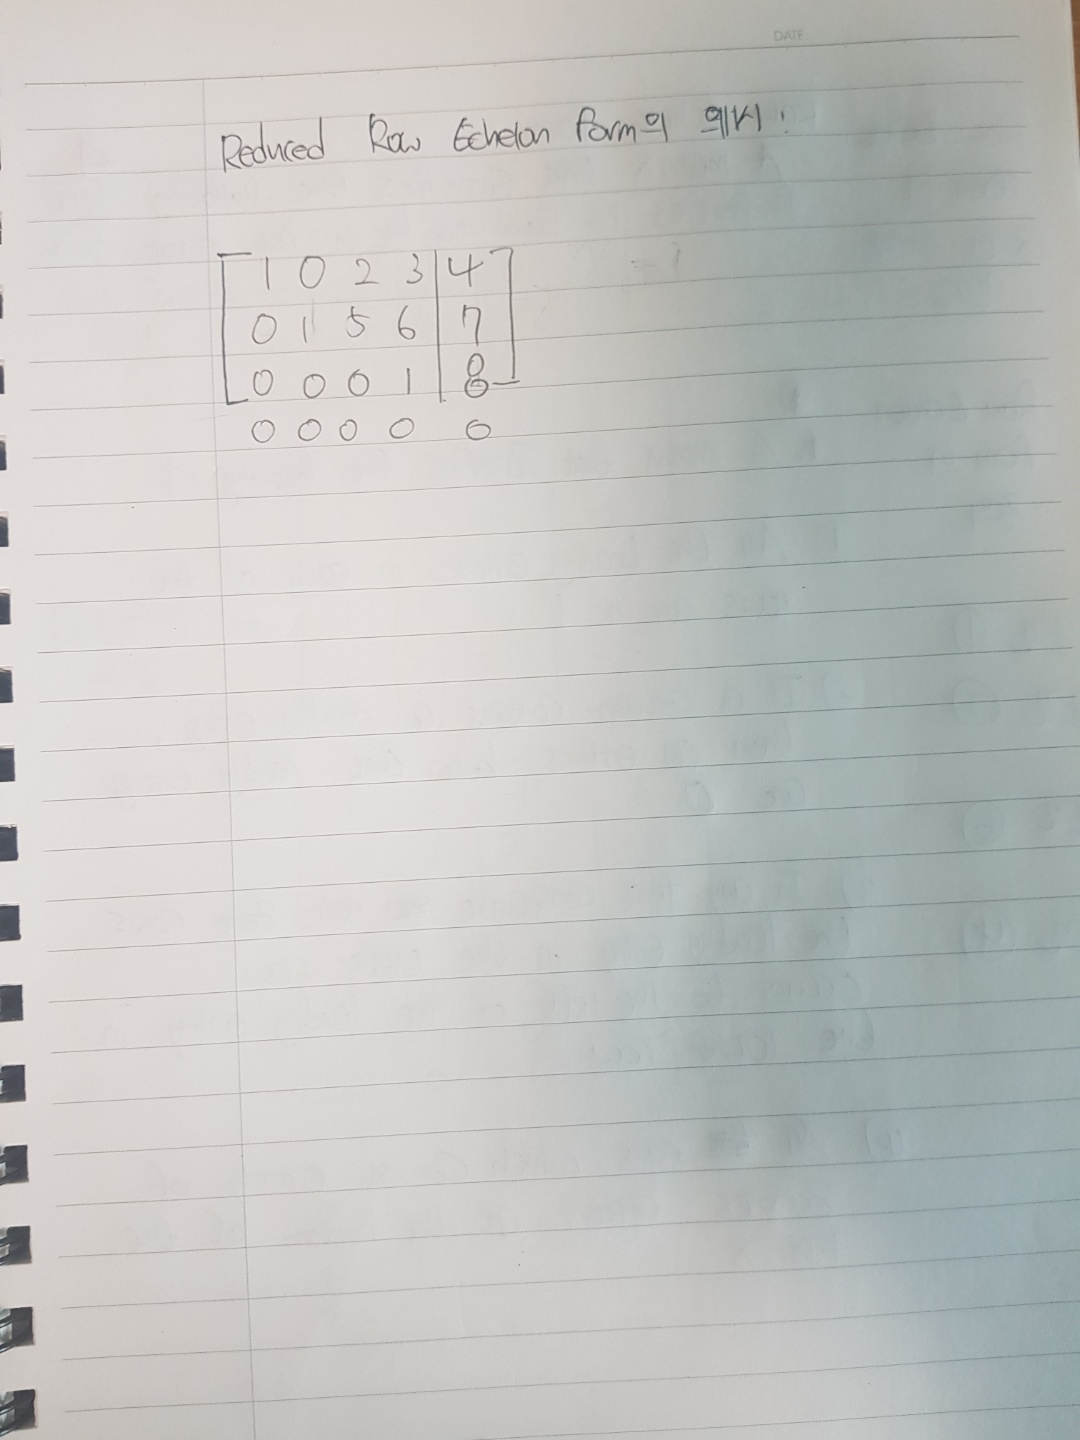 DATE
Reduced Row Echelon Form의 예시:
1 0 2 3 | 4
0 1 5 6 | 7
0 0 0 1 | 8
0 0 0 0 0